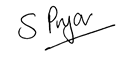 S Pryor